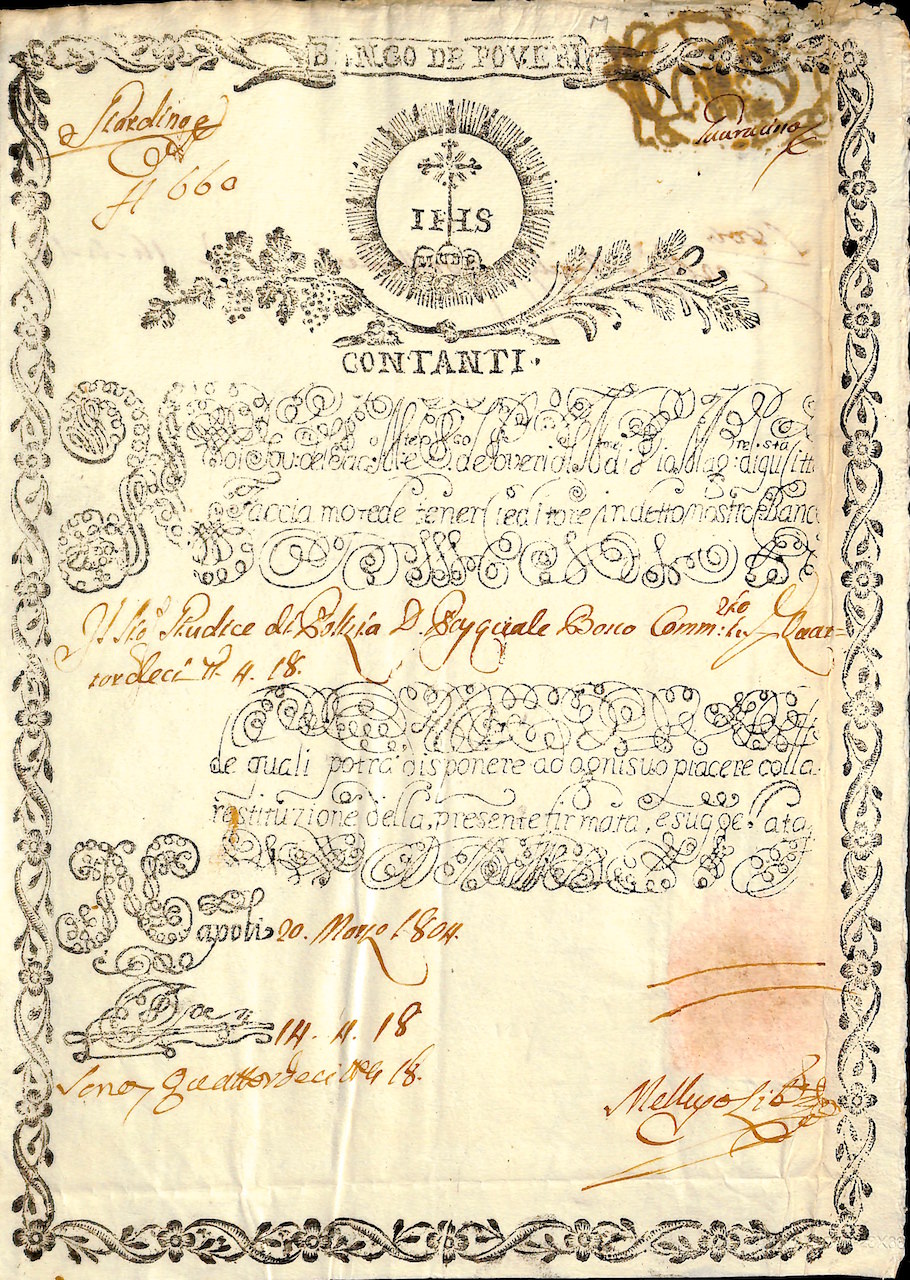 BANCO DE POVERI
Giardino
fl 660
IHS
CONTANTI.
Noi Gov: del Sac: Mte de Poveri del di Dio Mag: di questa Citta
Facciamo fede tener Creditore in detto nostro Banco
Il Sig. Giudice di Polizia D. Pasquale Bono Comm: Quat=
tordeci 4. 18.
de quali potrà disponere ad ogni suo piacere colla
restituzione della presente firmata, e sugge ata
Napoli 20. Marzo 1804.
D 14. 4. 18
Sono quattordeci 4 18.